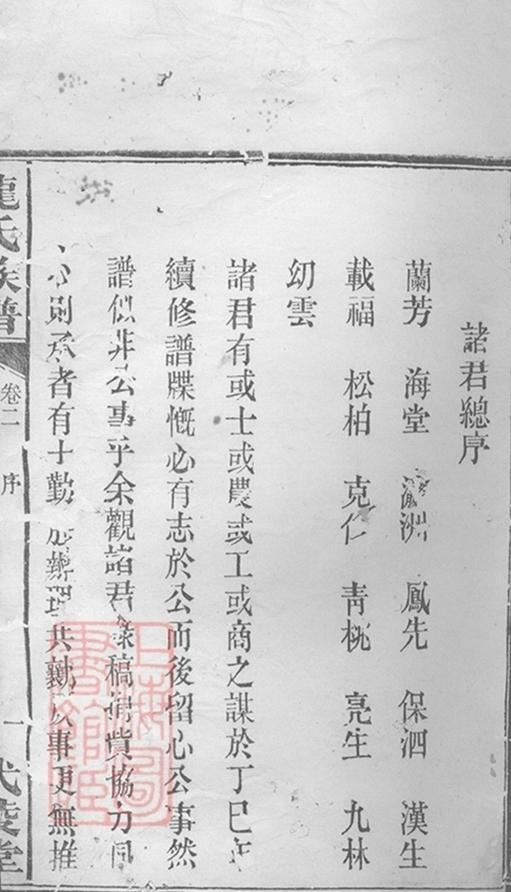 諸君總序
蘭芳 海堂 洲 鳳先 保泗 漢生
載福 松柏 克仁 青桃 亮生 九林
幻雲
諸君有或士或農或工或商之謀於丁巳年
續修譜牒慨必有志於公而後留心公事然
譜似非公事乎余觀諸君 稿 貲協力同
心則 者有十勤 辦理共勷 事更無推
龍氏族譜
卷二
序
一
武陵堂
上海圖書館藏